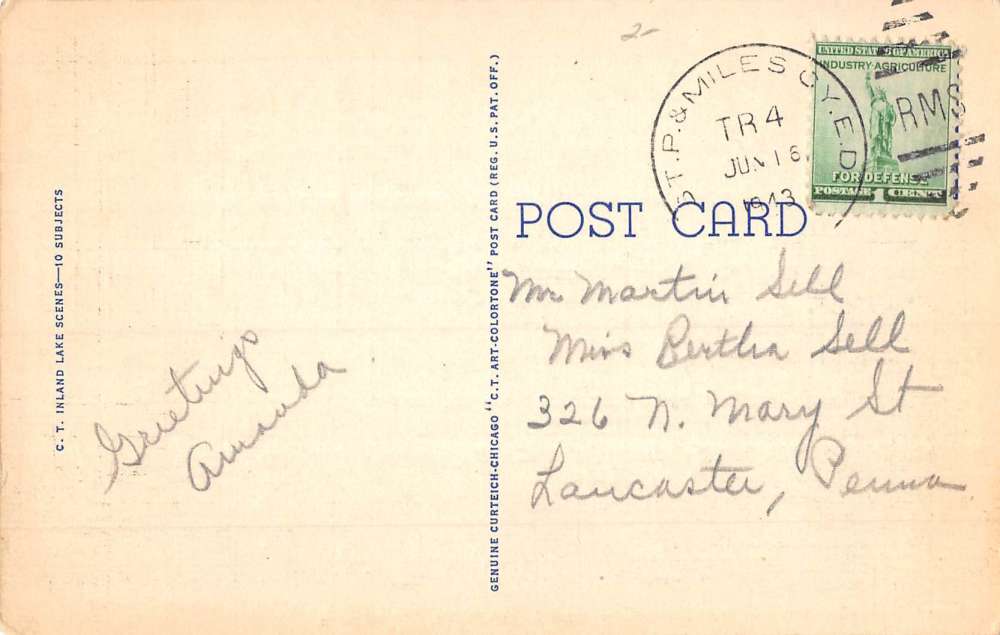 C. T. INLAND LAKE SCENES—10 SUBJECTS
Greetings
Amanda
GENUINE CURTEICH-CHICAGO "C.T. ART-COLORTONE" POST CARD (REG. U.S. PAT. OFF.)
2-
ST.P. & MILES CY. E.D.
TR 4
JUN 16
1943
RMS
UNITED STATES OF AMERICA
INDUSTRY·AGRICULTURE
FOR DEFENSE
POSTAGE 1 CENT
POST CARD
Mr. Martin Sell
Miss Bertha Sell
326 N. Mary St
Lancaster, Penna